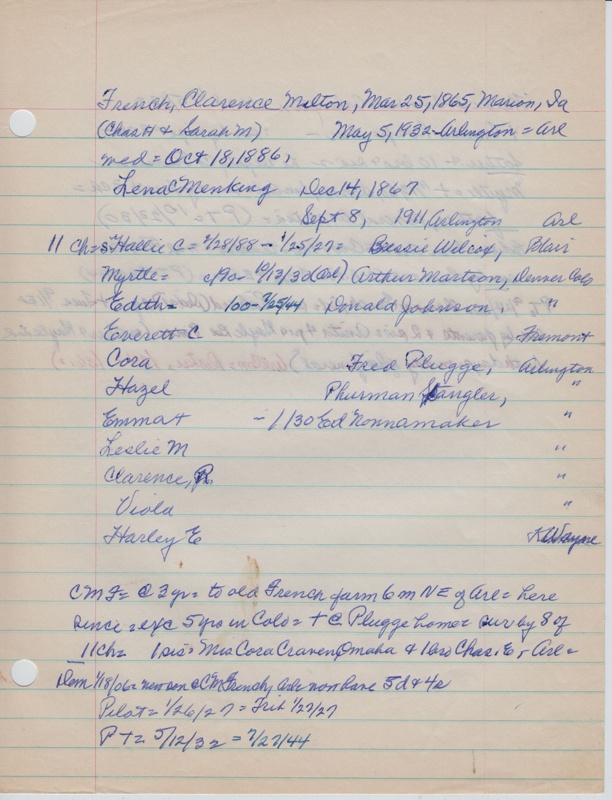 French, Clarence Melton, Mar 25, 1865, Marion, Ia
(Chas H & Sarah M) May 5, 1932 - Arlington = Arl
med = Oct 18, 1886,
Lena C Menking Dec 14, 1867
Sept 8, 1911, Arlington Arl
11 Ch = s Hallie C = 2/28/88 - 1/25/27 = Bessie Wilcox, Blair
Myrtle = c/90 - 10/13/3d (Arl) Arthur Martson, Denver Colo
Edith = 100 - 7/25/44 Donald Johnson, "
Everett C. Fremont
Cora Fred Plugge, Arlington
Hazel Phurman Spangler, "
Emma + - 1/30 Ed Nonnamaker "
Leslie M "
Clarence, R. "
Viola "
Harley E Ft Wayne
C M F = @ 3 yr = to old French farm 6 m N E of Arl = here
since = exc 5 yrs in Colo = + @ Plugge home = sur by 8 of
11 ch = 1 sis = Mrs Cora Craven, Omaha & 1 bro Chas. E, - Arl =
Dem 1/18/06 = new son @ C M French, Arl = now have 3 d & 4 s
Pilot = 1/26/27 = Trib 1/27/27
P T = 5/12/32 = 7/27/44